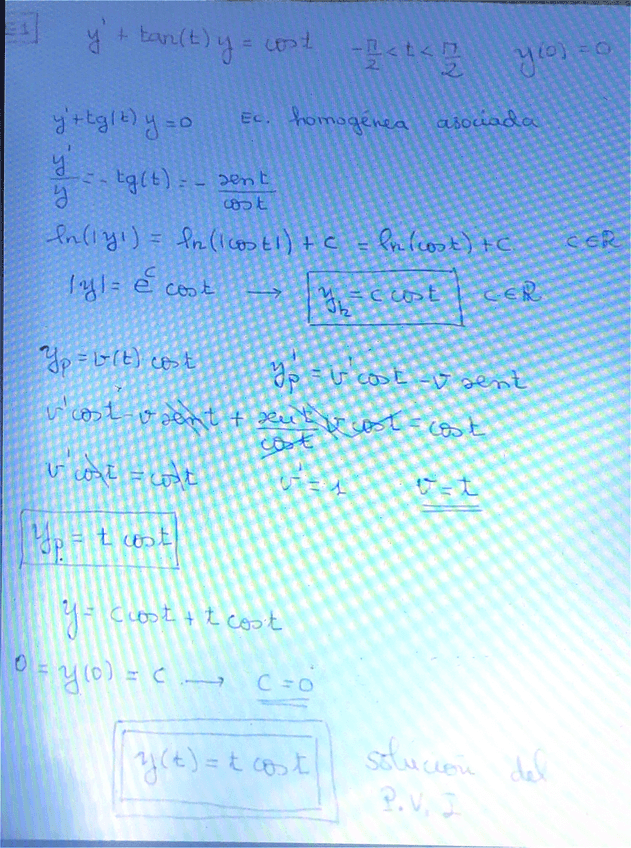 E1] y' + tan(t) y = cost -π/2 < t < π/2 y(0) = 0
y' + tg(t) y = 0 Ec. homogénea asociada
y'/y = - tg(t) = - sent/cost
ln(|y|) = ln(|cost|) + c = ln(cost) + c c∈R
|y| = e^c cost → y_h = c cost c∈R
y_p = v(t) cost y_p' = v' cost - v sent
v' cost - v sent + sent/cost v cost = cost
v' cost = cost v' = 1 v = t
y_p = t cost
y = c cost + t cost
0 = y(0) = c → c = 0
y(t) = t cost solución del
P.V.I